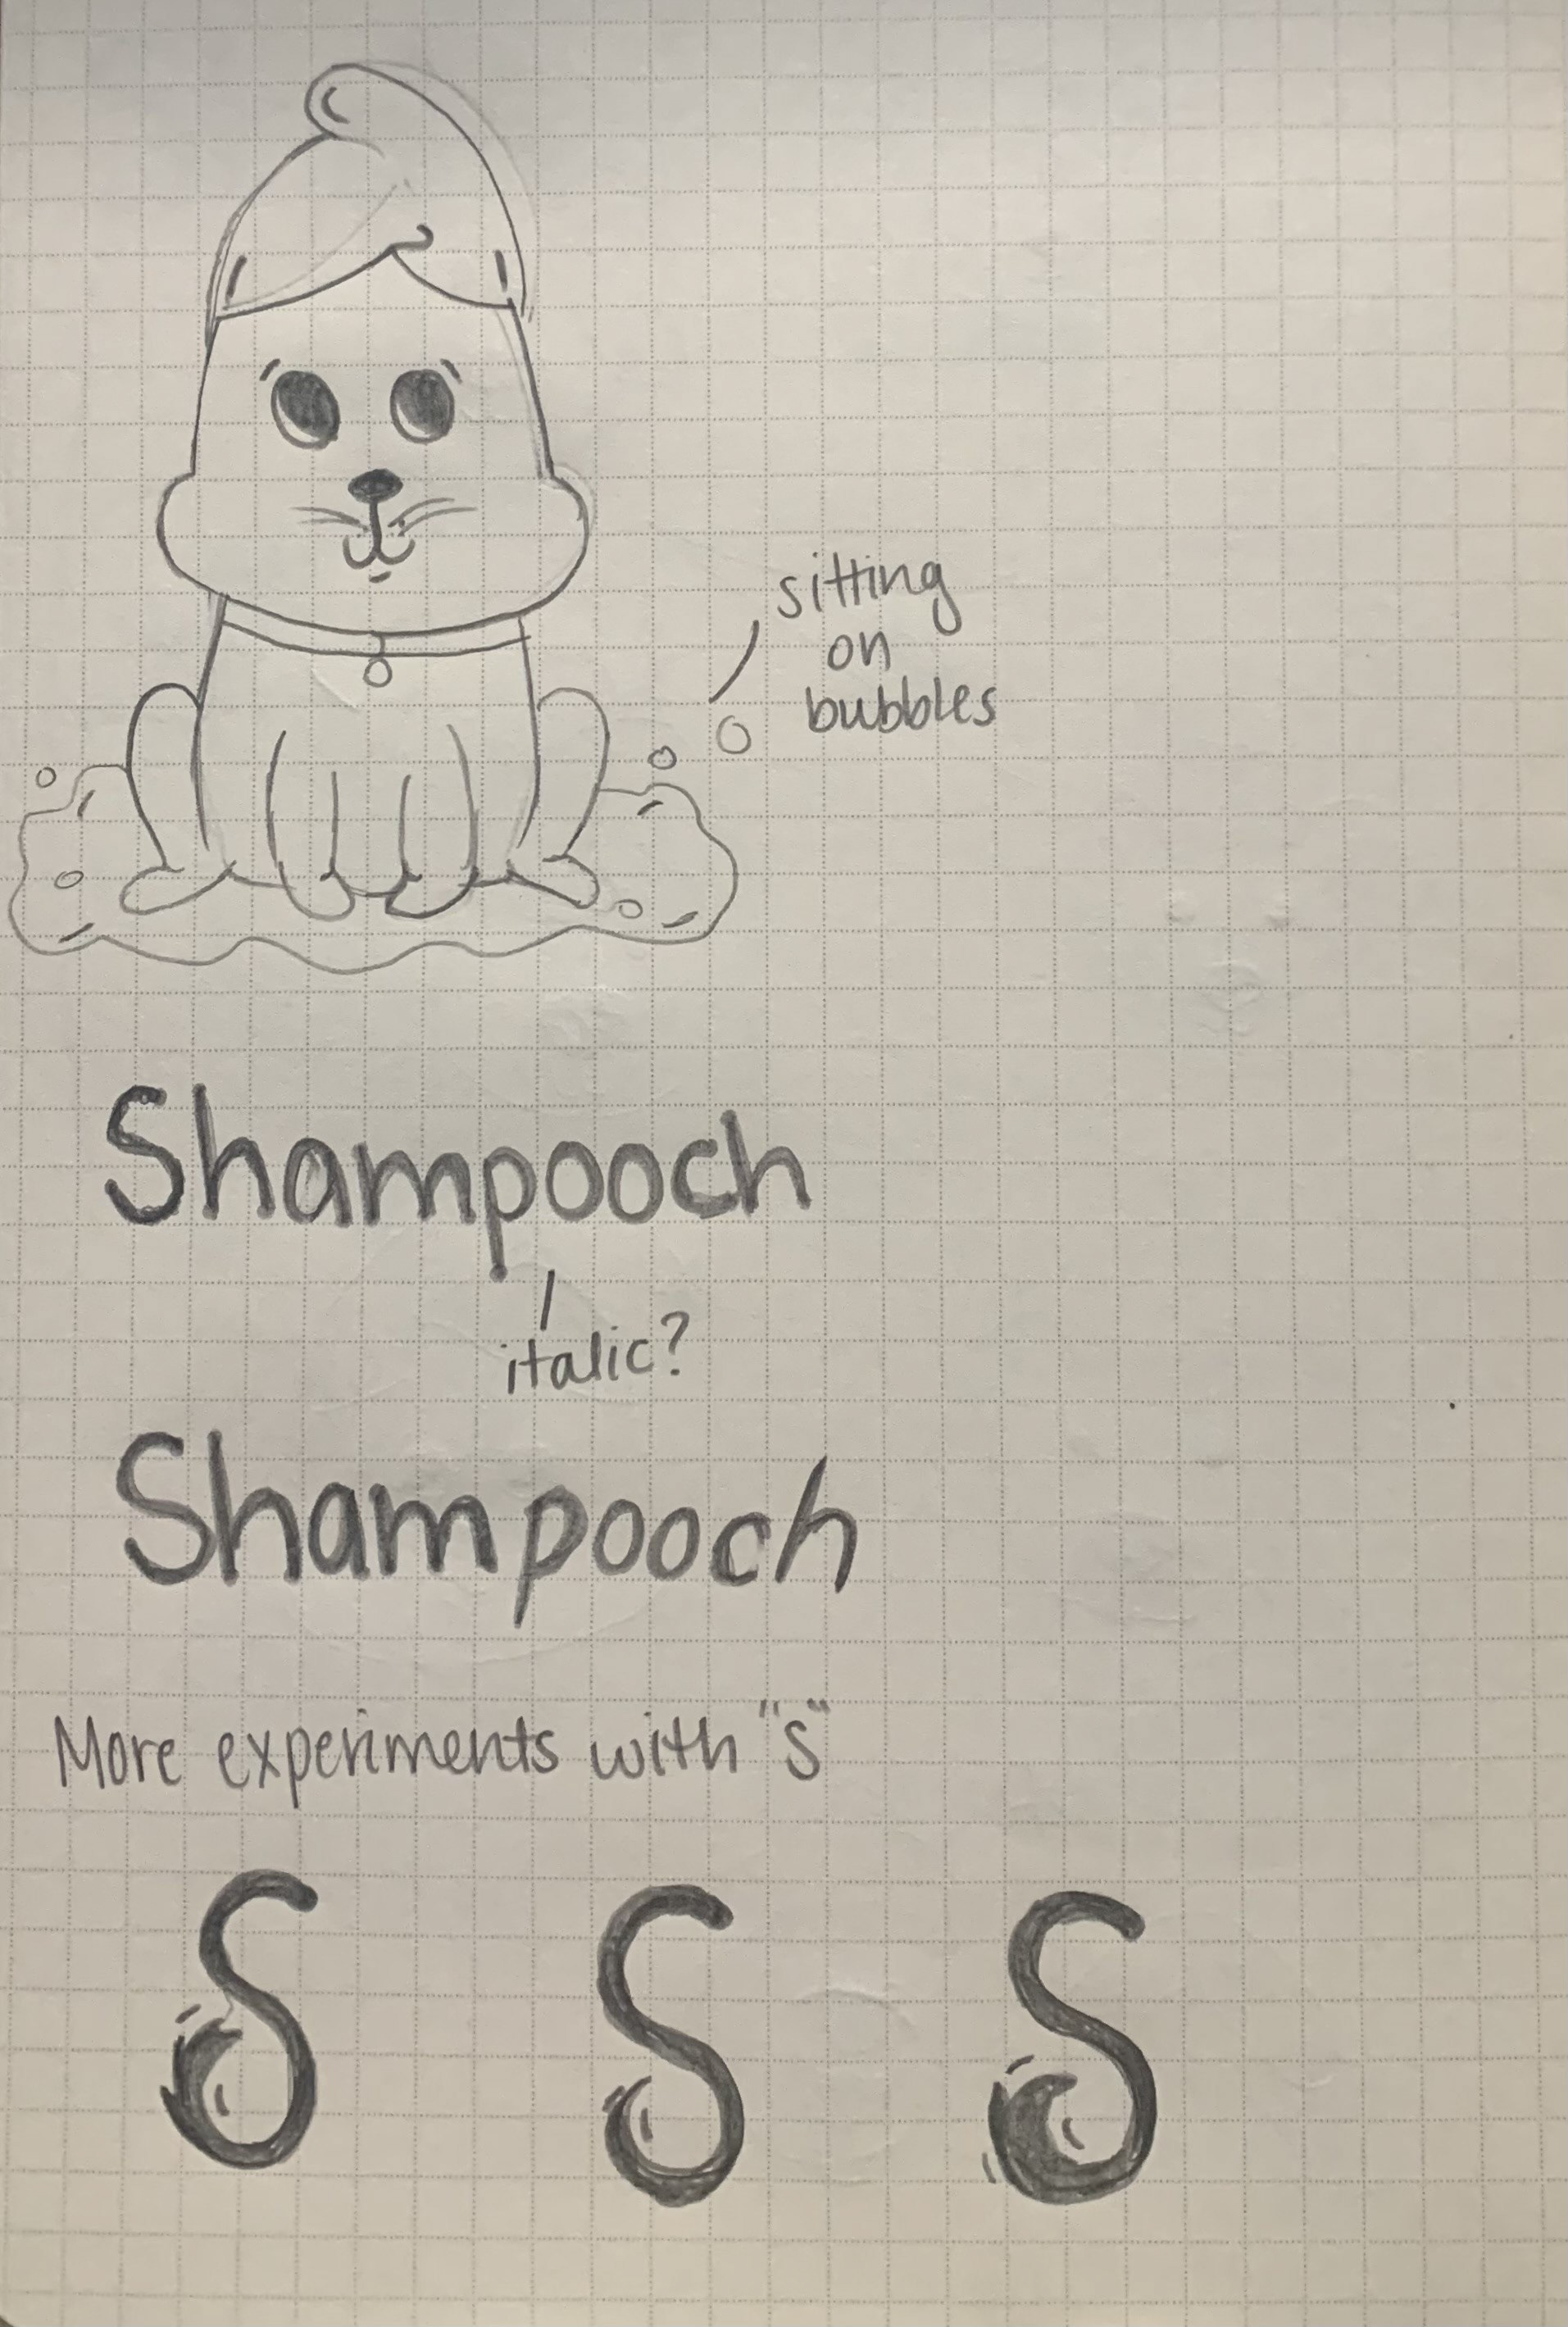 sitting
on
bubbles
Shampooch
italic?
Shampooch
More experiments with "S"
S S S